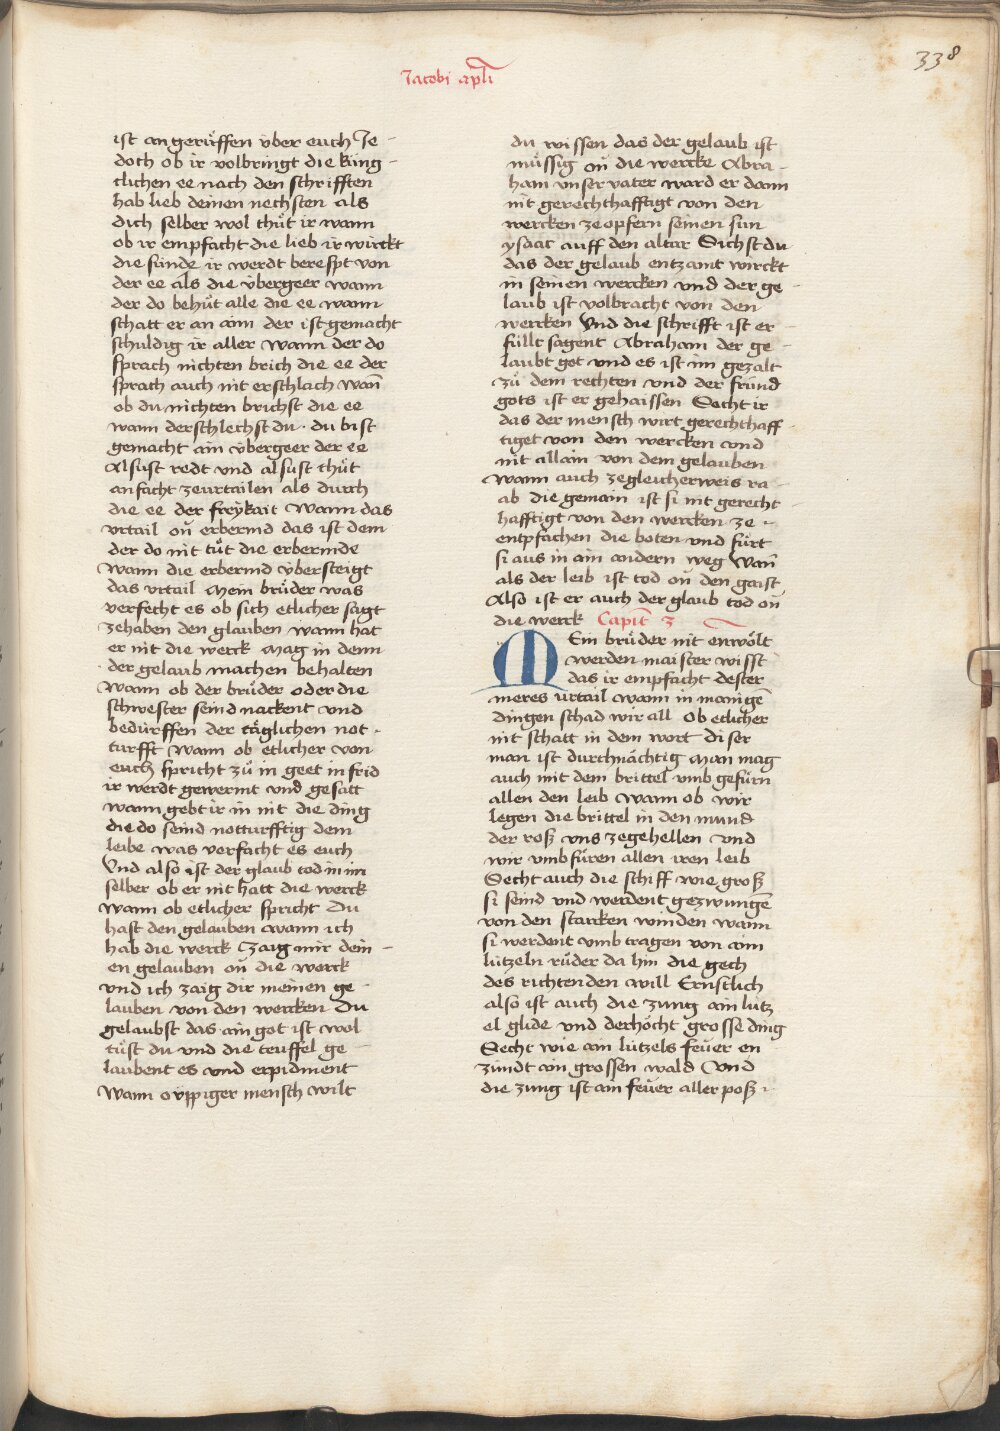 338
Jacobi apli
ist angerůffen vber euch Je-
doch ob ir volbringt die küng-
clichen ee nach den schrifften
hab lieb deinen nechsten als
dich selber wol thůt ir wann
ob ir empfacht die lieb ir wirckt
die sünde ir werdt berespt von
der ee als die vbergeer wann
der do behůt alle die ee wann
schatt er an aim der ist gemacht
schuldig ir aller Wann der do
sprach nichten brich die ee der
sprach auch nit erschlach wañ
ob du nichten brichst die ee
wann derschlechst du · du bist
gemacht ain vbergeer der ee
Alsust redt vnd alsust thůt
anfacht zeurtailen als durch
die ee der freÿkait Wann das
vrtail on̄ erbermd das ist dem
der do nit tůt die erbermde
Wann die erbermd vbersteigt
das vrtail Mein brůder was
verfecht es ob sich etlicher sagt
zehaben den glauben wann hat
er nit die werck Mag in denn
der gelaub machen behalten
Wann ob der brůder oder die
schwester seind nackent vnd
bedürffen der täglichen not-
turfft Wann ob etlicher von
euch spricht zů in geet in frid
ir werdt gewermt vnd gesatt
wann gebt ir in nit die ding
die do seind notturfftig dem
leibe was verfacht es euch
Vnd also ist der glaub tod in im
selber ob er nit hatt die werck
Wann ob etlicher spricht Du
hast den gelauben wann ich
hab die werck Zaig mir dein-
en gelauben on̄ die werck
vnd ich zaig dir meinen ge-
lauben von den wercken Du
gelaubst das ain got ist wol
tůst du vnd die teuffel ge-
laubent es vnd erpidment
Wann o vppiger mensch wilt
du wissen das der gelaub ist
můssig on die wercke Abra-
ham vnser vater ward er dann
nit gerechthafftigt von den
wercken zeopfern seinen sun
ysaac auff den altar Sichst du
das der gelaub entzamt wirckt
in seinen wercken vnd der ge-
laub ist volbracht von den
wercken Vnd die schrifft ist er-
füllt sagent Abraham der ge-
laubt got vnd es ist im gezalt
zů dem rechten vnd der fründ
gots ist er gehaissen Secht ir
das der mensch wirt gerechthaff-
tiget von den wercken vnd
nit allain von dem gelauben
Wann auch zegleicherweis ra-
ab die gemain ist si nit gerecht-
hafftigt von den wercken ze-
entpfachen die boten vnd fürt
si aus in ain andern weg Wañ
als der leib ist tod on̄ den gaist
Also ist er auch der glaub tod on̄
die werck Capit̄ 3
MEin brůder nit enwölt
werden maister wisst
das ir empfacht dester
meres vrtail wann in manigē
dingen schad wir all Ob etlicher
nit schatt in dem wort diser
man ist durchnächtig Man mag
auch mit dem brittel vmb gefürn
allen den leib Wann ob wir
legen die brittel in den mund
der roß vns zegehellen vnd
wir vmbfüren allen iren leib
Secht auch die schiff wie groß
si seind vnd werdent gezwungē
von den starcken winden wann
si werdent vmbtragen von aim
lützeln růder da hin die gech
des richtenden will Ernstlich
also ist auch die zung ain lütz
el glide vnd derhöcht grosse ding
Secht wie ain lützels feüer en
zündt ain grossen wald Vnd
die zung ist ain feüer aller poß-